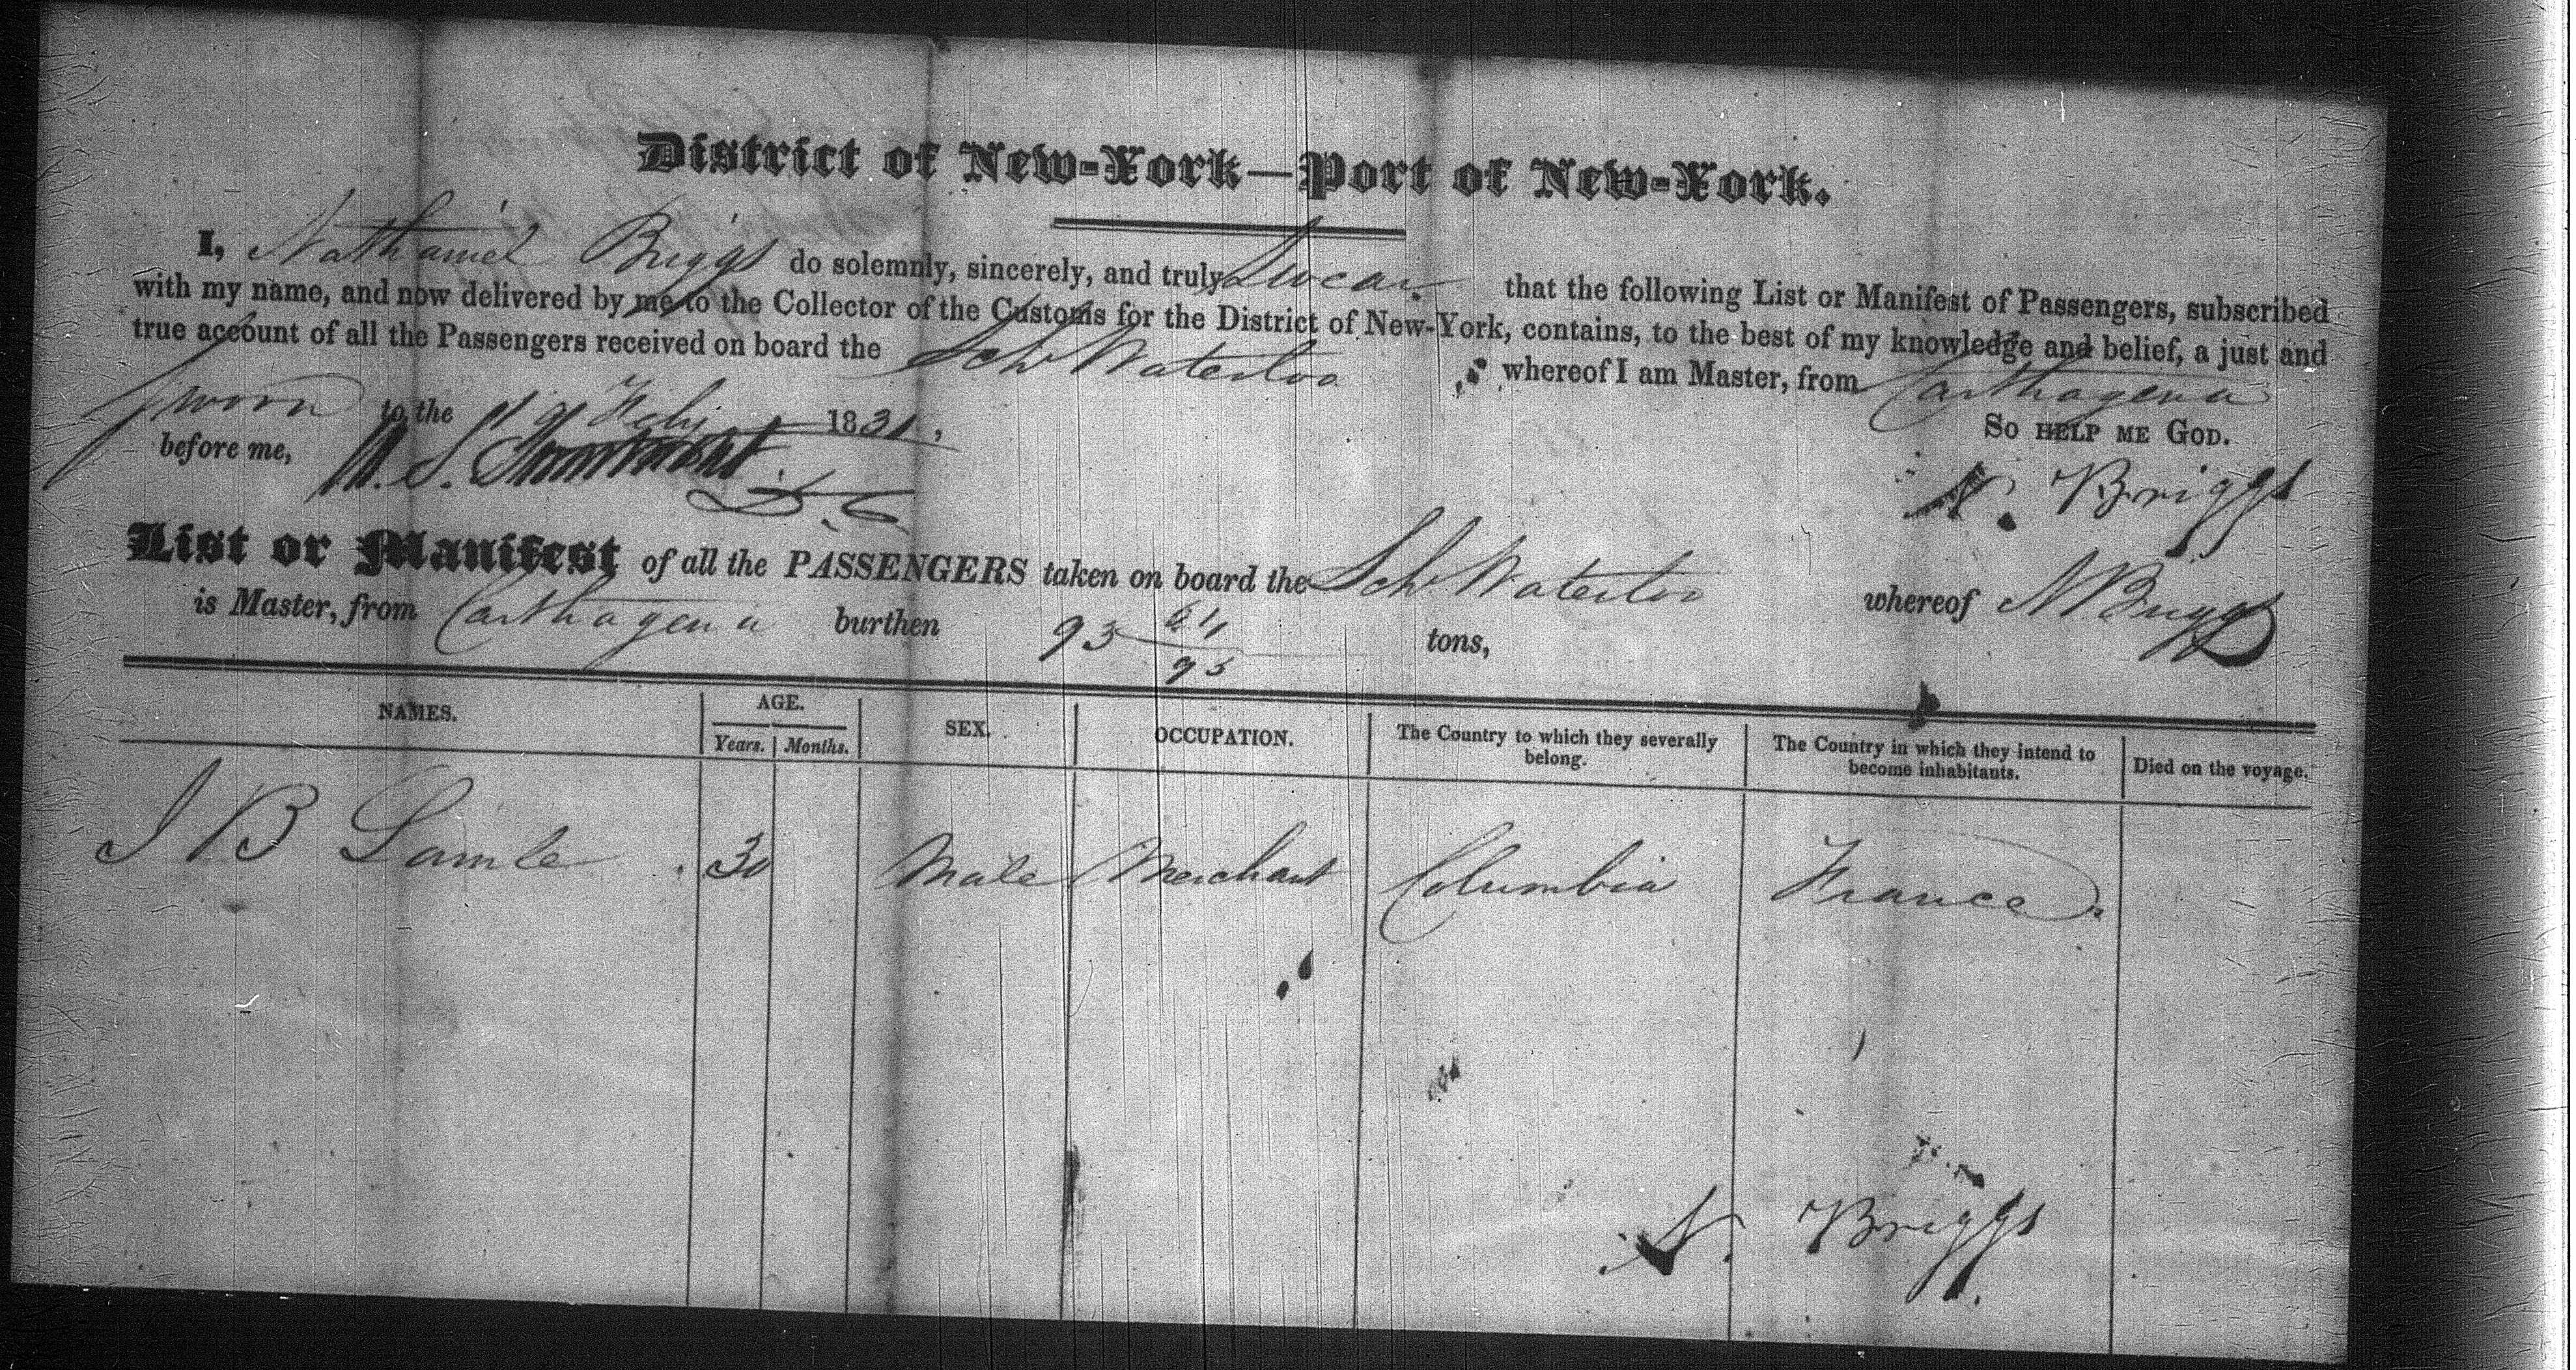 District of New-York—Port of New-York.
I, Nathaniel Briggs do solemnly, sincerely, and truly Swear that the following List or Manifest of Passengers, subscribed
with my name, and now delivered by me to the Collector of the Customs for the District of New-York, contains, to the best of my knowledge and belief, a just and
true account of all the Passengers received on board the Sch Waterloo whereof I am Master, from Carthagena
Sworn to the Feby 1831, So help me God.
before me, N. Briggs
D. C
List or Manifest of all the PASSENGERS taken on board the Sch Waterloo whereof N Briggs
is Master, from Carthagena burthen 93 61/95 tons,
NAMES. AGE. Years. Months. SEX. OCCUPATION. The Country to which they severally belong. The Country in which they intend to become inhabitants. Died on the voyage.
J B Lamle 30 Male Merchant Columbia France
N. Briggs